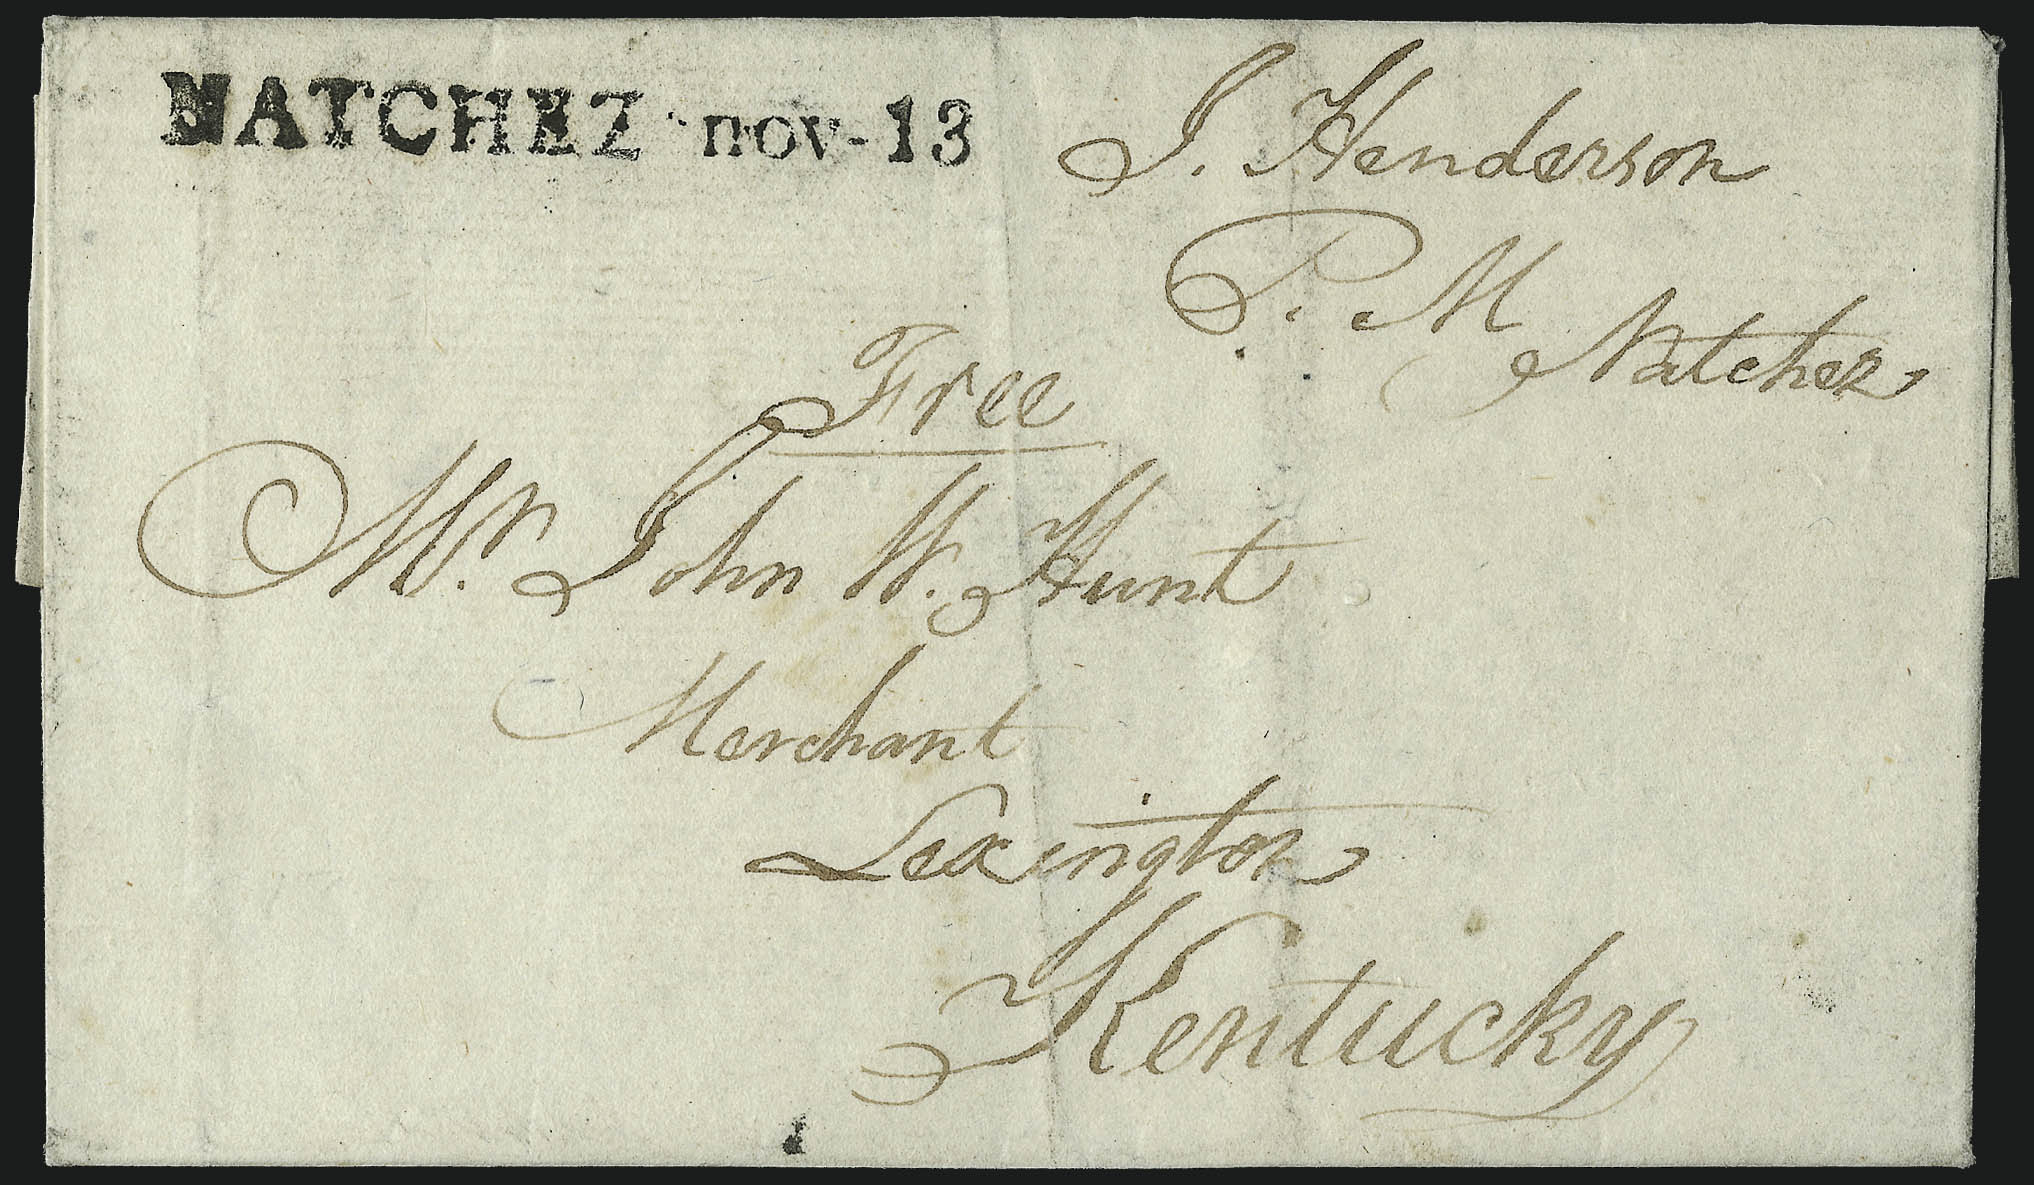 NATCHEZ nov-13
J. Henderson
P. M
Natchez
Free
Mr. John W. Hunt
Merchant
Lexington
Kentucky